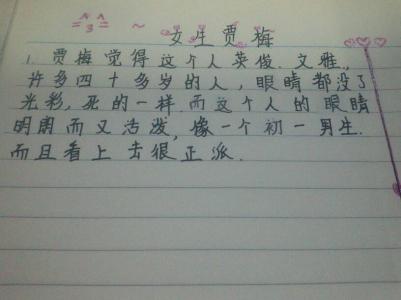 女生贾梅
1. 贾梅觉得这个人英俊.文雅.,
许多四十多岁的人,眼睛都没了
光彩,死的一样而这个人的眼睛
明朗而又活泼,像一个初一男生.
而且看上去很正派.